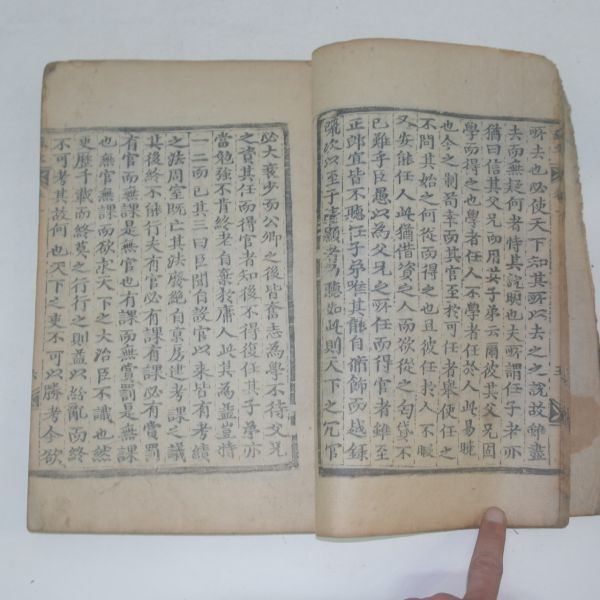 所去也必使天下知其所以去之之說故雖盡
去而無疑何者恃其說明也夫所謂任子者亦
猶曰信其父兄而用其子弟云爾彼其父兄固
學而得之也學者任人不學者任於人此易曉
也今之制苟幸而其官至於可任者舉使任之
不問其始之何從而得之也且彼任於人不暇
又安能任人此猶借資之人而欲從之匄貸不
已難乎臣愚以為父兄之所任而得官者雖至
正郎宜皆不聽任子弟唯其能自修飾而越錄
躐次以至于清顯者乃聽如此則天下之冗官
必大衰少而公卿之後皆奮志為學不待父兄
之資其任而得官者知後不得復任其子弟亦
當勉強不肯終老自棄於庸人此其為益豈特
一二而已其三曰臣聞自設官以來皆有考績
之法周室既亡其法廢絕自京房建考課之議
其後終不能行夫有官必有課有課必有賞罰
有官而無課是無官也有課而無賞罰是無課
也無官無課而欲求天下之大治臣不識也然
更歷千載而終莫之行行之則益以紛亂而終
不可考其故何也天下之吏不可以勝考今欲